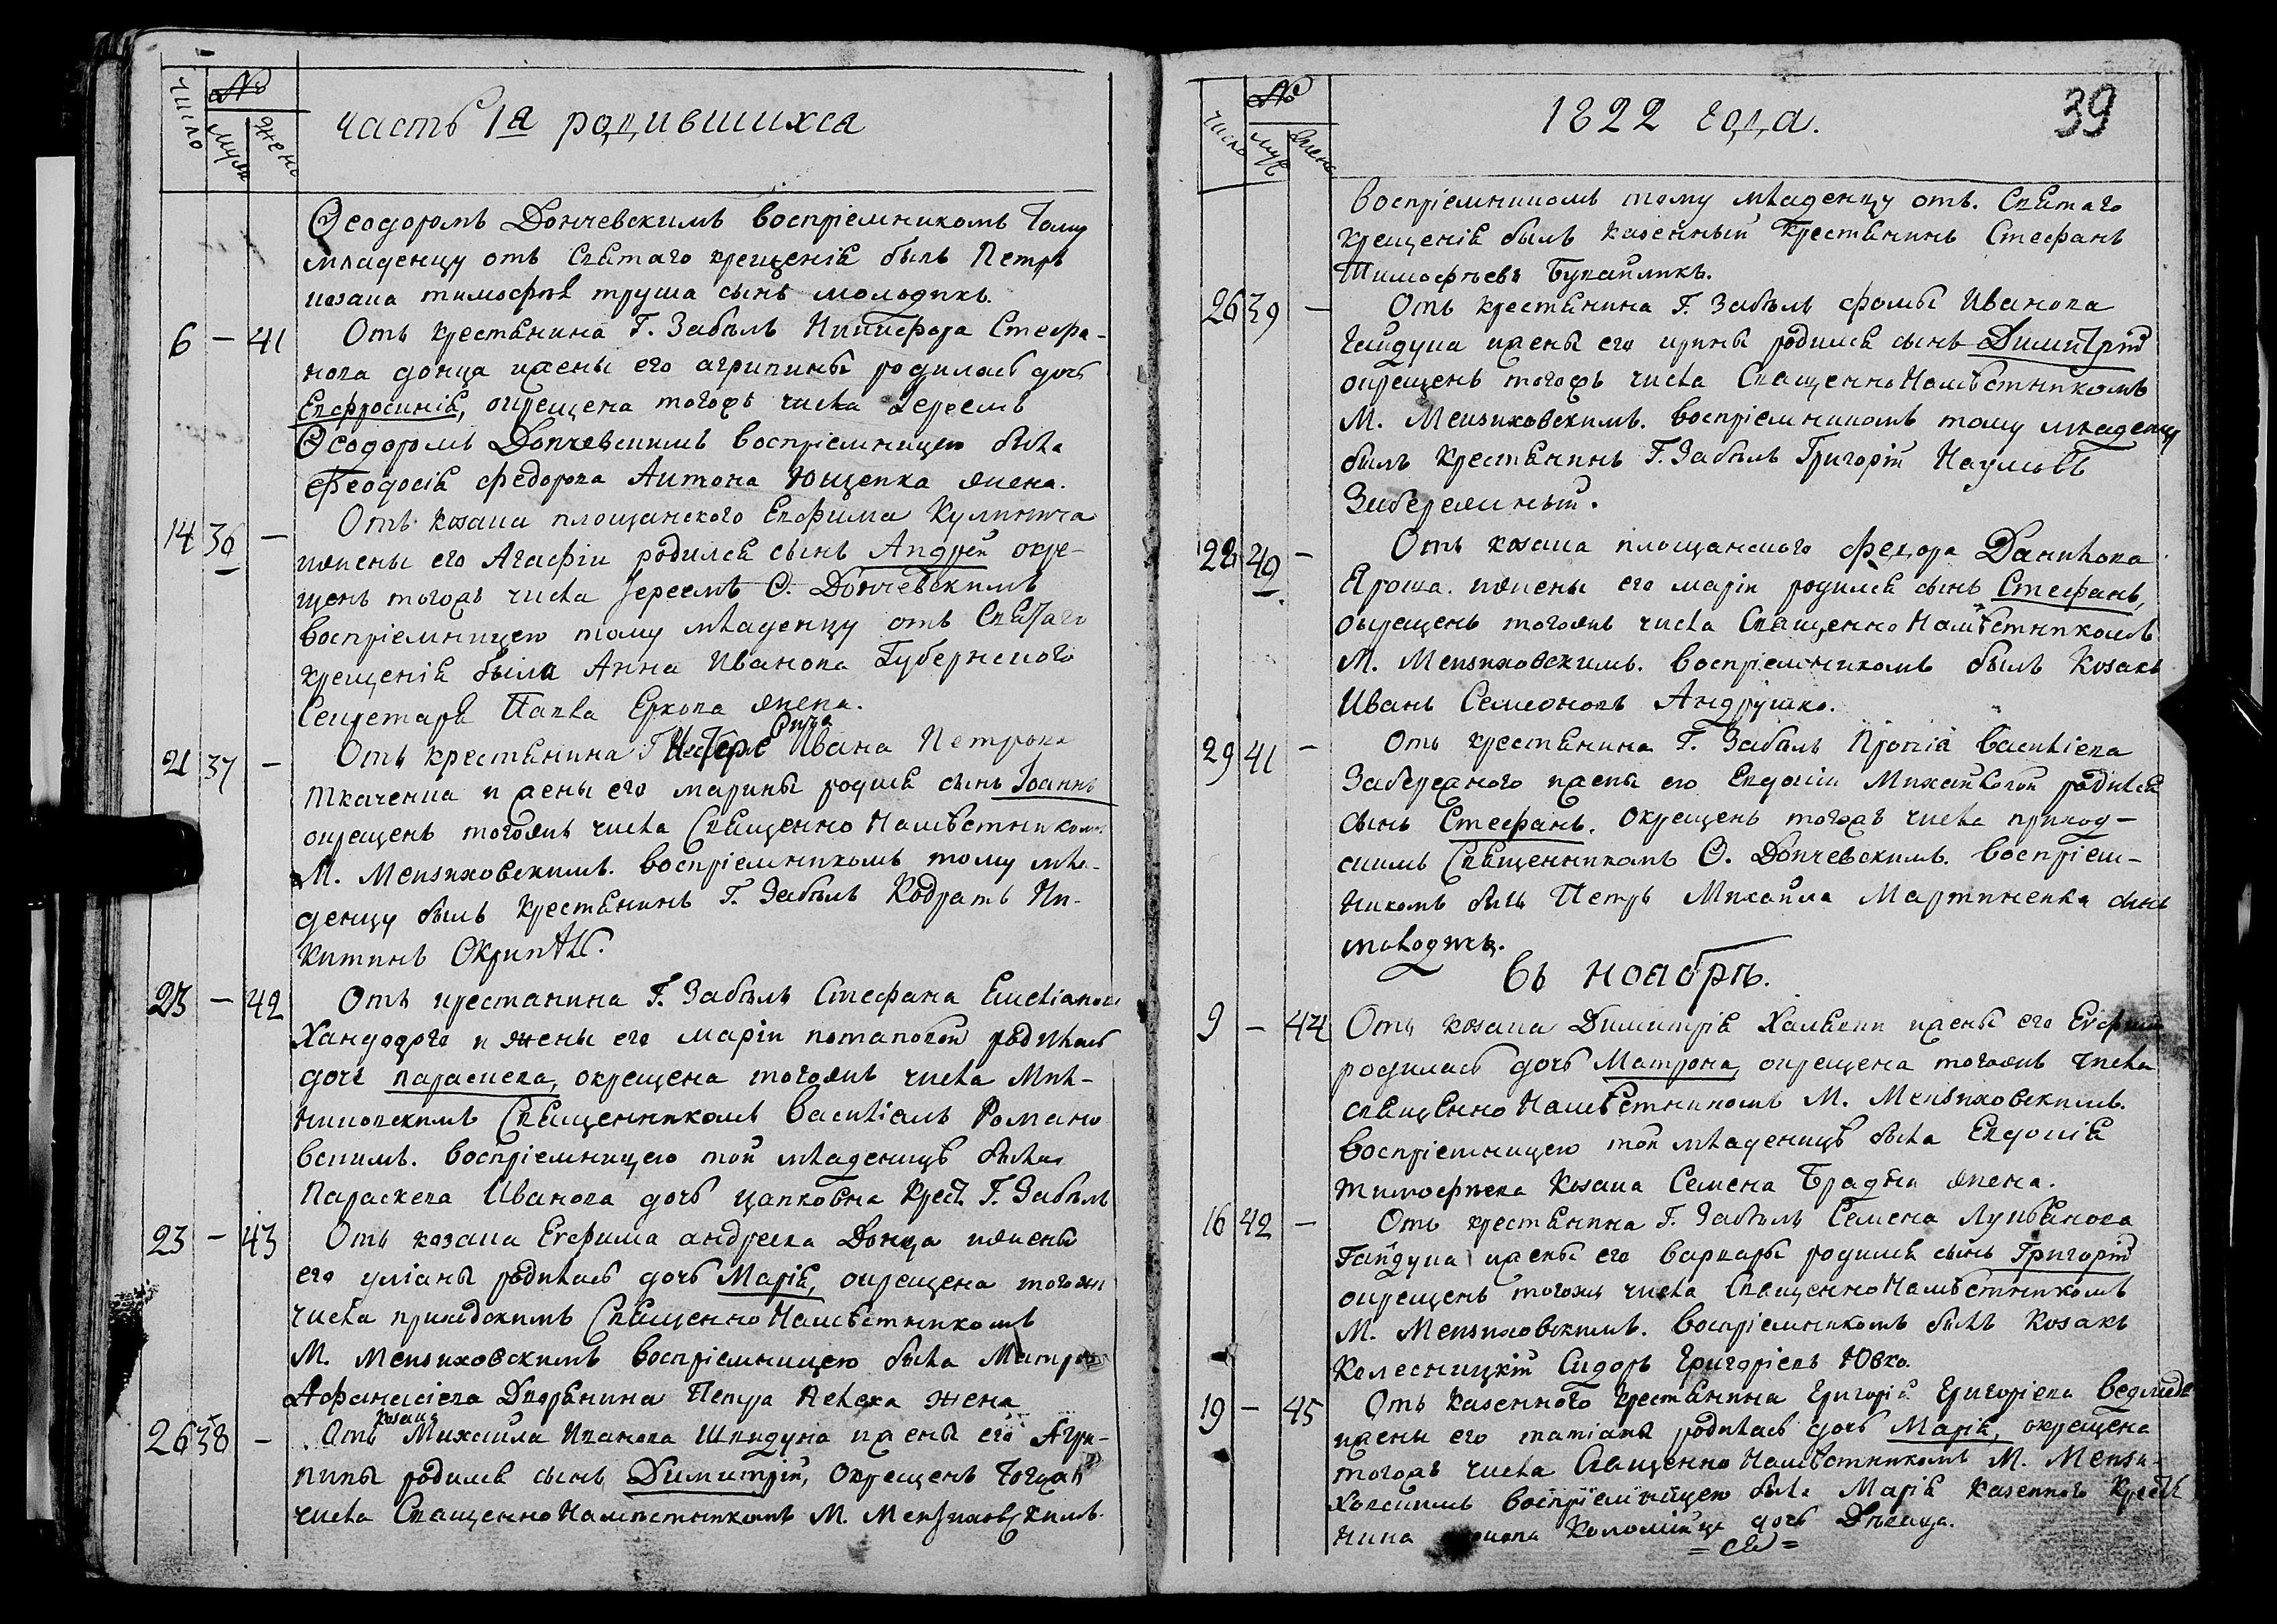 число
№
муж
жен
часть 1я родившихся
Ѳеодоромъ Дончевскимъ воспріемникомъ тому
младенцу отъ Святаго крещенія былъ Петръ
козака тимофея труша сынъ молодикъ.
6 — 41 Отъ крестянина Г. Забѣлъ Никифора Стефа-
нова донца и жены его агрипины родилась дочь
Евфросинія, окрещена тогожъ числа Іереемъ
Ѳеодоромъ Дончевскимъ воспріемницею была
Феодосія федорова Антона Ющенка жена.
14 36 — Отъ козака площанского Евфима Кулинича
и жены его Агафіи родился сынъ Андрей окре-
щенъ тогожъ числа Іереемъ Ѳ. Дончевскимъ
воспріемницею тому младенцу отъ Святаго
крещенія была Анна Иванова Губернского
Секретаря Павла Еркова жена.
21 37 — Отъ крестянина Г Ивана Петрова
Ткаченка и жены его марины родился сынъ Іоаннъ
окрещенъ тогожъ числа Священно Намѣстникомъ
М. Мензиховскимъ. воспріемникомъ тому мла-
денцу былъ крестянинъ Г. Забѣлъ Кодратъ Ни-
китинъ
23 — 42 Отъ крестянина Г. Забѣлъ Стефана Емеліанова
Хандодого и жены его маріи потаповой родилась
дочь параскева, окрещена тогожъ числа
Священникомъ Василіемъ Романо
вскимъ. воспріемницею той младеницѣ была
Параскева Иванова дочь цапковна Крест. Г. Забѣлъ
23 — 43 Отъ козака Евфима андреева Донца и жены
его уліаны родилась дочь Марія, окрещена тогожъ
числа приходскимъ Священно Намѣстникомъ
М. Мензиховскимъ воспріемницею была Матрона
Афанасіева Дворянина Петра жена
26 38 — Отъ козака Михаила Иванова Шкидуна и жены его Агри-
пины родился сынъ Димитрій, Окрещенъ тогожъ
числа Священно Намѣстникомъ М. Мензиховскимъ.
число
№
муж
жен
1822 года.
39
воспріемникомъ тому младенцу отъ Святаго
крещенія былъ казенный крестянинъ Стефанъ
Тимофѣевъ Букайликъ.
26 39 — Отъ крестянина Г. Забѣлъ фомы Иванова
Гайдука и жены его ирины родился сынъ Димитрій
окрещенъ тогожъ числа Священно Намѣстникомъ
М. Мензиховскимъ. воспріемникомъ тому младенцу
былъ крестянинъ Г. Забѣлъ Григорій Наумовъ
Забережный.
28 40 — Отъ козака площанского федора Данилова
Яроша и жены его маріи родился сынъ Стефанъ,
окрещенъ тогожъ числа Священно Намѣстникомъ
М. Мензиховскимъ. воспріемникомъ былъ Козакъ
Иванъ Семеоновъ Андрушко.
29 41 — Отъ крестянина Г. Забѣлъ Прокпа Василіева
Забережного и жены его Евдокіи Михайловой родился
сынъ Стефанъ. Окрещенъ тогожъ числа приход-
скимъ Священникомъ Ѳ. Дончевскимъ. воспріем-
никомъ былъ Петръ Михайла Мартиненка сынъ
молодикъ.
въ ноябрѣ.
9 — 44 Отъ козака Димитрія Халявки и жены его Евфиміи
родилась дочь Матрона, окрещена тогожъ числа
священно Намѣстникомъ М. Мензиховскимъ.
воспріемницею той младеницѣ была Евдокія
тимофѣева Козака Семена жена.
16 42 — Отъ крестянина Г. Забѣлъ Семена Лукьянова
Гайдука и жены его варвары родился сынъ Григорій
окрещенъ тогожъ числа Священно Намѣстникомъ
М. Мензиховскимъ. воспріемникомъ былъ Козакъ
Колесницкій Сидоръ Григоріевъ Ювко.
19 — 45 Отъ Казенного крестянина Григорія Григоріева
и жены его татіаны родилась дочь Марія, окрещена
тогожъ числа Священно Намѣстникомъ М. Мензи-
ховскимъ воспріемницею была Марія Казенного Крестя
нина Коломійца дочь Дѣвица.